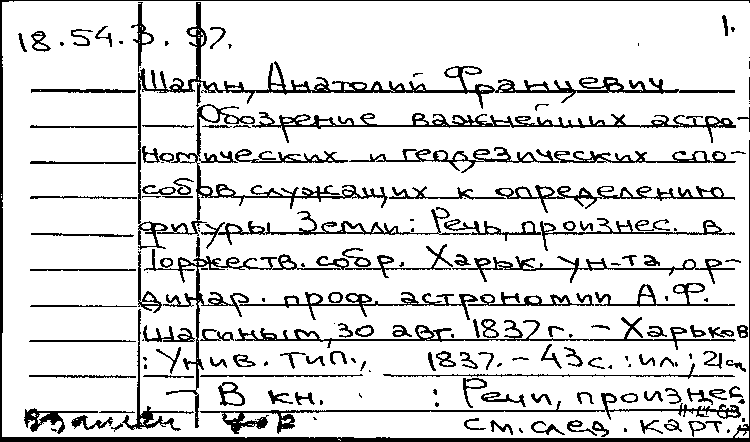 18.54.3.97.
1.
Шагин, Анатолий Францевич
Обозрение важнейших астро-
номических и геодезических спо-
собов, служащих к определению
фигуры Земли: Речь, произнес. в
Торжеств. собр. Харьк. ун-та, ор-
динар. проф. астрономии А.Ф.
Шагиным, 30 авг. 1837 г. - Харьков
: Унив. тип., 1837. - 43 с. : ил.; 21 см
- В кн. : Речи, произнес.
см. след. карт.